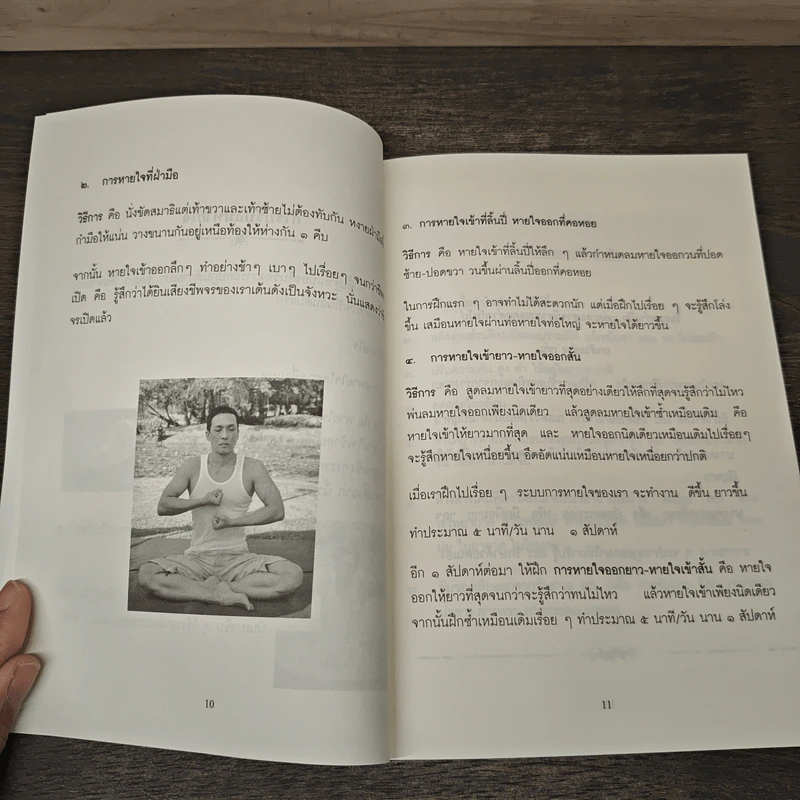 ๒. การหายใจที่ฝ่ามือ
วิธีการ คือ นั่งขัดสมาธิแต่เท้าขวาและเท้าซ้ายไม่ต้องทับกัน หงายฝ่ามือ
กำมือให้แน่น วางขนานกันอยู่เหนือท้องให้ห่างกัน ๑ คืบ
จากนั้น หายใจเข้าออกลึกๆ ทำอย่างช้าๆ เบาๆ ไปเรื่อยๆ จนกว่าชีพ
เปิด คือ รู้สึกว่าได้ยินเสียงชีพจรของเราเต้นดังเป็นจังหวะ นั่นแสดงว่าชี
จรเปิดแล้ว
10
๓. การหายใจเข้าที่ลิ้นปี่ หายใจออกที่คอหอย
วิธีการ คือ หายใจเข้าที่ลิ้นปี่ให้ลึก ๆ แล้วกำหนดลมหายใจออกวนที่ปอด
ซ้าย-ปอดขวา วนขึ้นผ่านลิ้นปี่ออกที่คอหอย
ในการฝึกแรก ๆ อาจทำไม่ได้สะดวกนัก แต่เมื่อฝึกไปเรื่อย ๆ จะรู้สึกโล่ง
ขึ้น เสมือนหายใจผ่านท่อหายใจท่อใหญ่ จะหายใจได้ยาวขึ้น
๔. การหายใจเข้ายาว-หายใจออกสั้น
วิธีการ คือ สูดลมหายใจเข้ายาวที่สุดอย่างเดียวให้ลึกที่สุดจนรู้สึกว่าไม่ไหว
พ่นลมหายใจออกเพียงนิดเดียว แล้วสูดลมหายใจเข้าซ้ำเหมือนเดิม คือ
หายใจเข้าให้ยาวมากที่สุด และ หายใจออกนิดเดียวเหมือนเดิมไปเรื่อยๆ
จะรู้สึกหายใจเหนื่อยขึ้น อึดอัดแน่นเหมือนหายใจเหนื่อยกว่าปกติ
เมื่อเราฝึกไปเรื่อย ๆ ระบบการหายใจของเรา จะทำงาน ดีขึ้น ยาวขึ้น
ทำประมาณ ๕ นาที/วัน นาน ๑ สัปดาห์
อีก ๑ สัปดาห์ต่อมา ให้ฝึก การหายใจออกยาว-หายใจเข้าสั้น คือ หายใจ
ออกให้ยาวที่สุดจนกว่าจะรู้สึกว่าทนไม่ไหว แล้วหายใจเข้าเพียงนิดเดียว
จากนั้นฝึกซ้ำเหมือนเดิมเรื่อย ๆ ทำประมาณ ๕ นาที/วัน นาน ๑ สัปดาห์
11